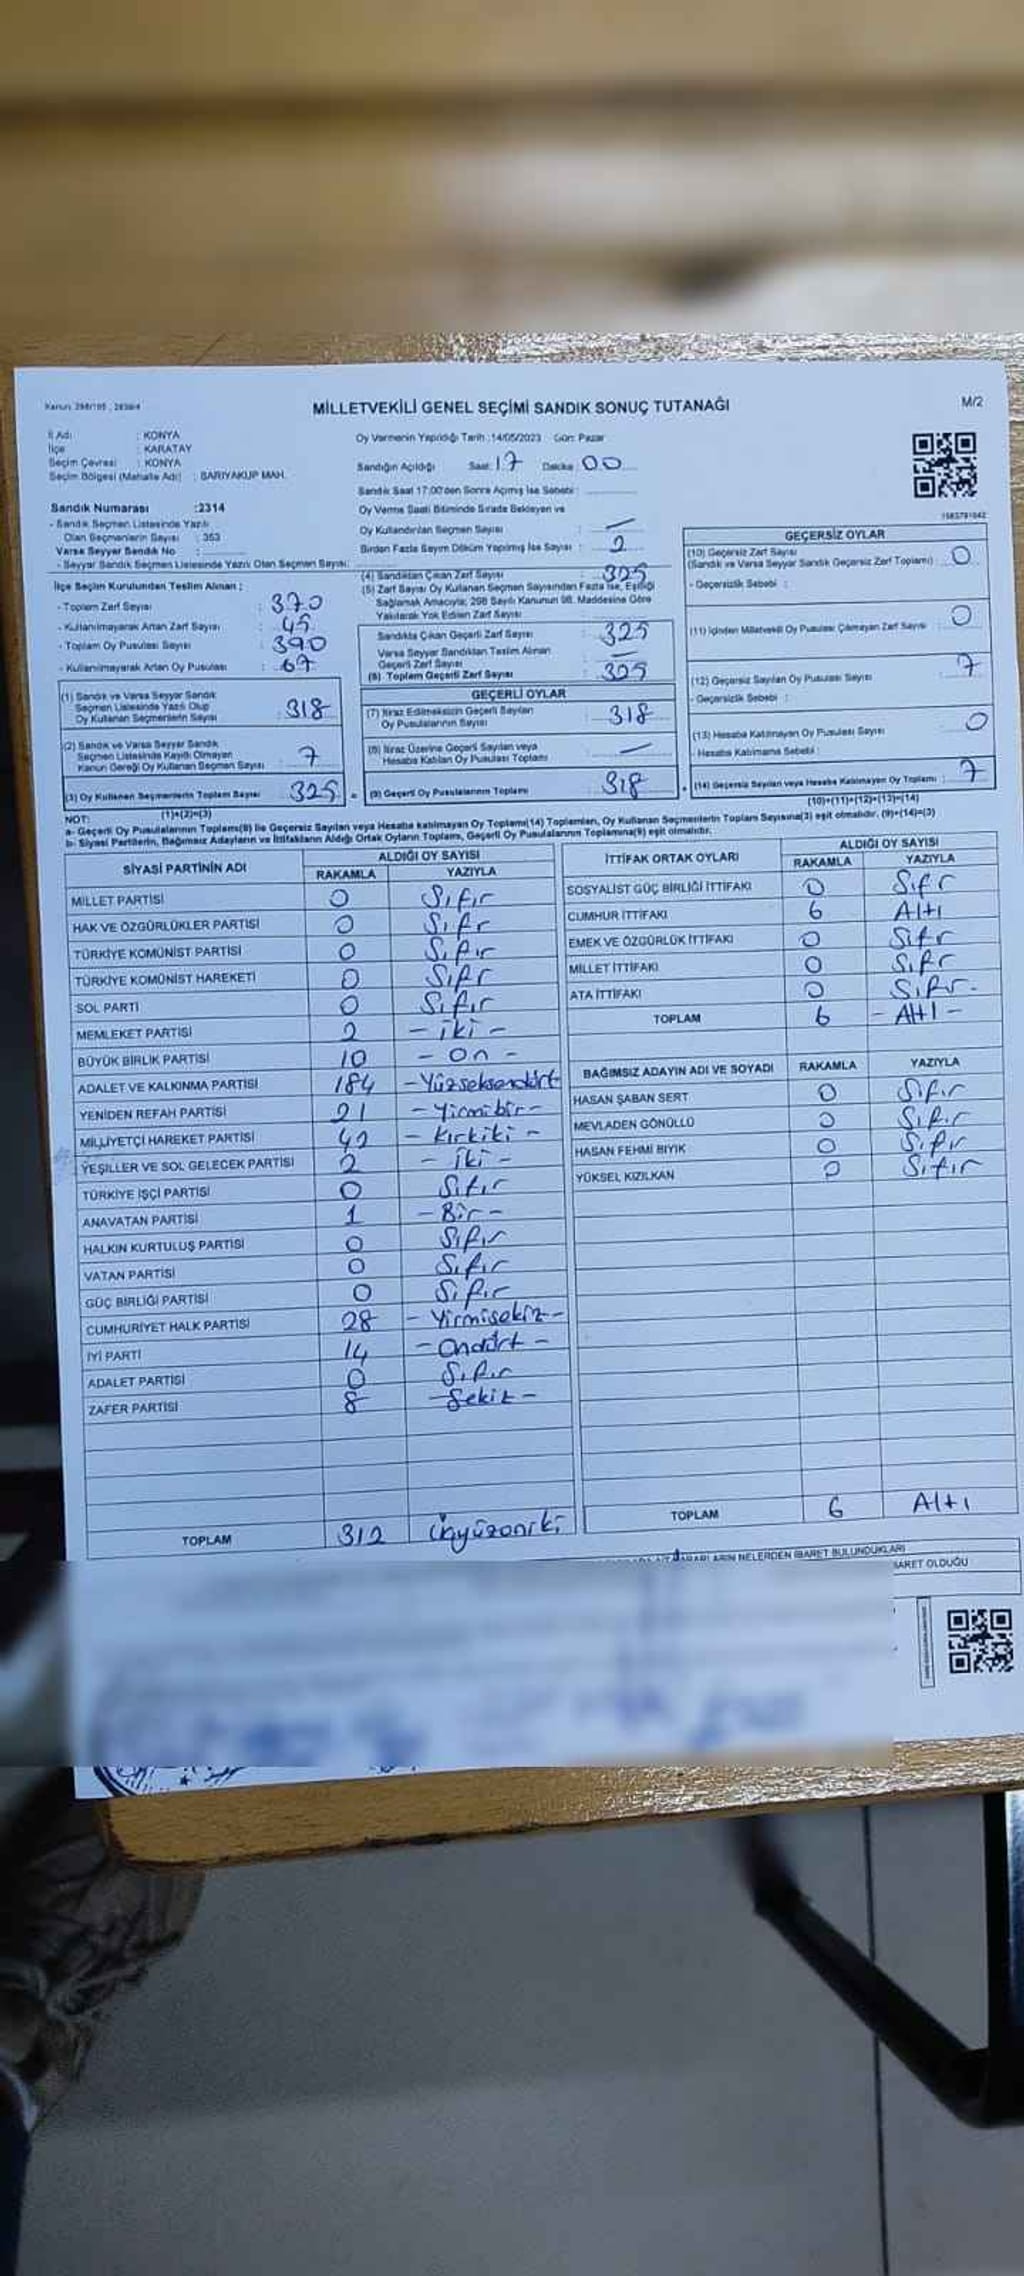 Kanun: 298/105 , 2839/4
MİLLETVEKİLİ GENEL SEÇİMİ SANDIK SONUÇ TUTANAĞI
M/2
İl Adı : KONYA
İlçe : KARATAY
Seçim Çevresi : KONYA
Seçim Bölgesi (Mahalle Adı) : SARIYAKUP MAH.
Sandık Numarası :2314
- Sandık Seçmen Listesinde Yazılı
Olan Seçmenlerin Sayısı : 353
Varsa Seyyar Sandık No :
- Seyyar Sandık Seçmen Listesinde Yazılı Olan Seçmen Sayısı:
İlçe Seçim Kurulundan Teslim Alınan ;
- Toplam Zarf Sayısı : 370
- Kullanılmayarak Artan Zarf Sayısı : 45
- Toplam Oy Pusulası Sayısı : 390
- Kullanılmayarak Artan Oy Pusulası : 67
(1) Sandık ve Varsa Seyyar Sandık
Seçmen Listesinde Yazılı Olup
Oy Kullanan Seçmenlerin Sayısı : 318
(2) Sandık ve Varsa Seyyar Sandık
Seçmen Listesinde Kayıtlı Olmayan
Kanun Gereği Oy Kullanan Seçmen Sayısı : 7
(3) Oy Kullanan Seçmenlerin Toplam Sayısı : 325 =
(1)+(2)=(3)
Oy Vermenin Yapıldığı Tarih :14/05/2023 Gün: Pazar
Sandığın Açıldığı Saat: 17 Dakika: 00
Sandık Saat 17:00'den Sonra Açımış İse Sebebi :
Oy Verme Saati Bitiminde Sırada Bekleyen ve
Oy Kullandırılan Seçmen Sayısı : —
Birden Fazla Sayım Döküm Yapılmış İse Sayısı : 2
(4) Sandıktan Çıkan Zarf Sayısı : 325
(5) Zarf Sayısı Oy Kullanan Seçmen Sayısından Fazla İse, Eşitliği
Sağlamak Amacıyla; 298 Sayılı Kanunun 98. Maddesine Göre
Yakılarak Yok Edilen Zarf Sayısı
Sandıkta Çıkan Geçerli Zarf Sayısı : 325
Varsa Seyyar Sandıktan Teslim Alınan
Geçerli Zarf Sayısı : —
(6) Toplam Geçerli Zarf Sayısı : 325
GEÇERLİ OYLAR
(7) İtiraz Edilmeksizin Geçerli Sayılan
Oy Pusulalarının Sayısı : 318
(8) İtiraz Üzerine Geçerli Sayılan veya
Hesaba Katılan Oy Pusulası Toplamı : —
(9) Geçerli Oy Pusulalarının Toplamı : 318 +
1583791042
GEÇERSİZ OYLAR
(10) Geçersiz Zarf Sayısı
(Sandık ve Varsa Seyyar Sandık Geçersiz Zarf Toplamı) : 0
- Geçersizlik Sebebi :
(11) İçinden Milletvekili Oy Pusulası Çıkmayan Zarf Sayısı : 0
(12) Geçersiz Sayılan Oy Pusulası Sayısı : 7
- Geçersizlik Sebebi :
(13) Hesaba Katılmayan Oy Pusulası Sayısı : 0
- Hesaba Katılmama Sebebi :
(14) Geçersiz Sayılan veya Hesaba Katılmayan Oy Toplamı : 7
(10)+(11)+(12)+(13)=(14)
NOT:
a- Geçerli Oy Pusulalarının Toplamı(9) ile Geçersiz Sayılan veya Hesaba katılmayan Oy Toplamı(14) Toplamları, Oy Kullanan Seçmenlerin Toplam Sayısına(3) eşit olmalıdır. (9)+(14)=(3)
b- Siyasi Partilerin, Bağımsız Adayların ve İttifakların Aldığı Ortak Oyların Toplamı, Geçerli Oy Pusulalarının Toplamına(9) eşit olmalıdır.
SİYASİ PARTİNİN ADI ALDIĞI OY SAYISI
RAKAMLA YAZIYLA
MİLLET PARTİSİ 0 Sıfır
HAK VE ÖZGÜRLÜKLER PARTİSİ 0 Sıfr
TÜRKİYE KOMÜNİST PARTİSİ 0 Sıfır
TÜRKİYE KOMÜNİST HAREKETİ 0 Sıfr
SOL PARTİ 0 Sıfır
MEMLEKET PARTİSİ 2 - iki -
BÜYÜK BİRLİK PARTİSİ 10 - On -
ADALET VE KALKINMA PARTİSİ 184 - Yüzseksendört
YENİDEN REFAH PARTİSİ 21 - Yirmibir -
MİLLİYETÇİ HAREKET PARTİSİ 42 - Kırkiki -
YEŞİLLER VE SOL GELECEK PARTİSİ 2 - iki -
TÜRKİYE İŞÇİ PARTİSİ 0 Sıfır
ANAVATAN PARTİSİ 1 - Bir -
HALKIN KURTULUŞ PARTİSİ 0 Sıfır
VATAN PARTİSİ 0 Sıfır
GÜÇ BİRLİĞİ PARTİSİ 0 Sıfır
CUMHURİYET HALK PARTİSİ 28 - Yirmisekiz -
İYİ PARTİ 14 - Ondört -
ADALET PARTİSİ 0 Sıfır
ZAFER PARTİSİ 8 - Sekiz -
TOPLAM 312 Üçyüzoniki
İTTİFAK ORTAK OYLARI ALDIĞI OY SAYISI
RAKAMLA YAZIYLA
SOSYALİST GÜÇ BİRLİĞİ İTTİFAKI 0 Sıfr
CUMHUR İTTİFAKI 6 Altı
EMEK VE ÖZGÜRLÜK İTTİFAKI 0 Sıfr
MİLLET İTTİFAKI 0 Sıfr
ATA İTTİFAKI 0 Sıfır.
TOPLAM 6 - Altı -
BAĞIMSIZ ADAYIN ADI VE SOYADI RAKAMLA YAZIYLA
HASAN ŞABAN SERT 0 Sıfır
MEVLADEN GÖNÜLLÜ 0 Sıfır
HASAN FEHMİ BIYIK 0 Sıfır
YÜKSEL KIZILKAN 0 Sıfır
TOPLAM 6 Altı
KARARLARIN NELERDEN İBARET BULUNDUKLARI
İBARET OLDUĞU